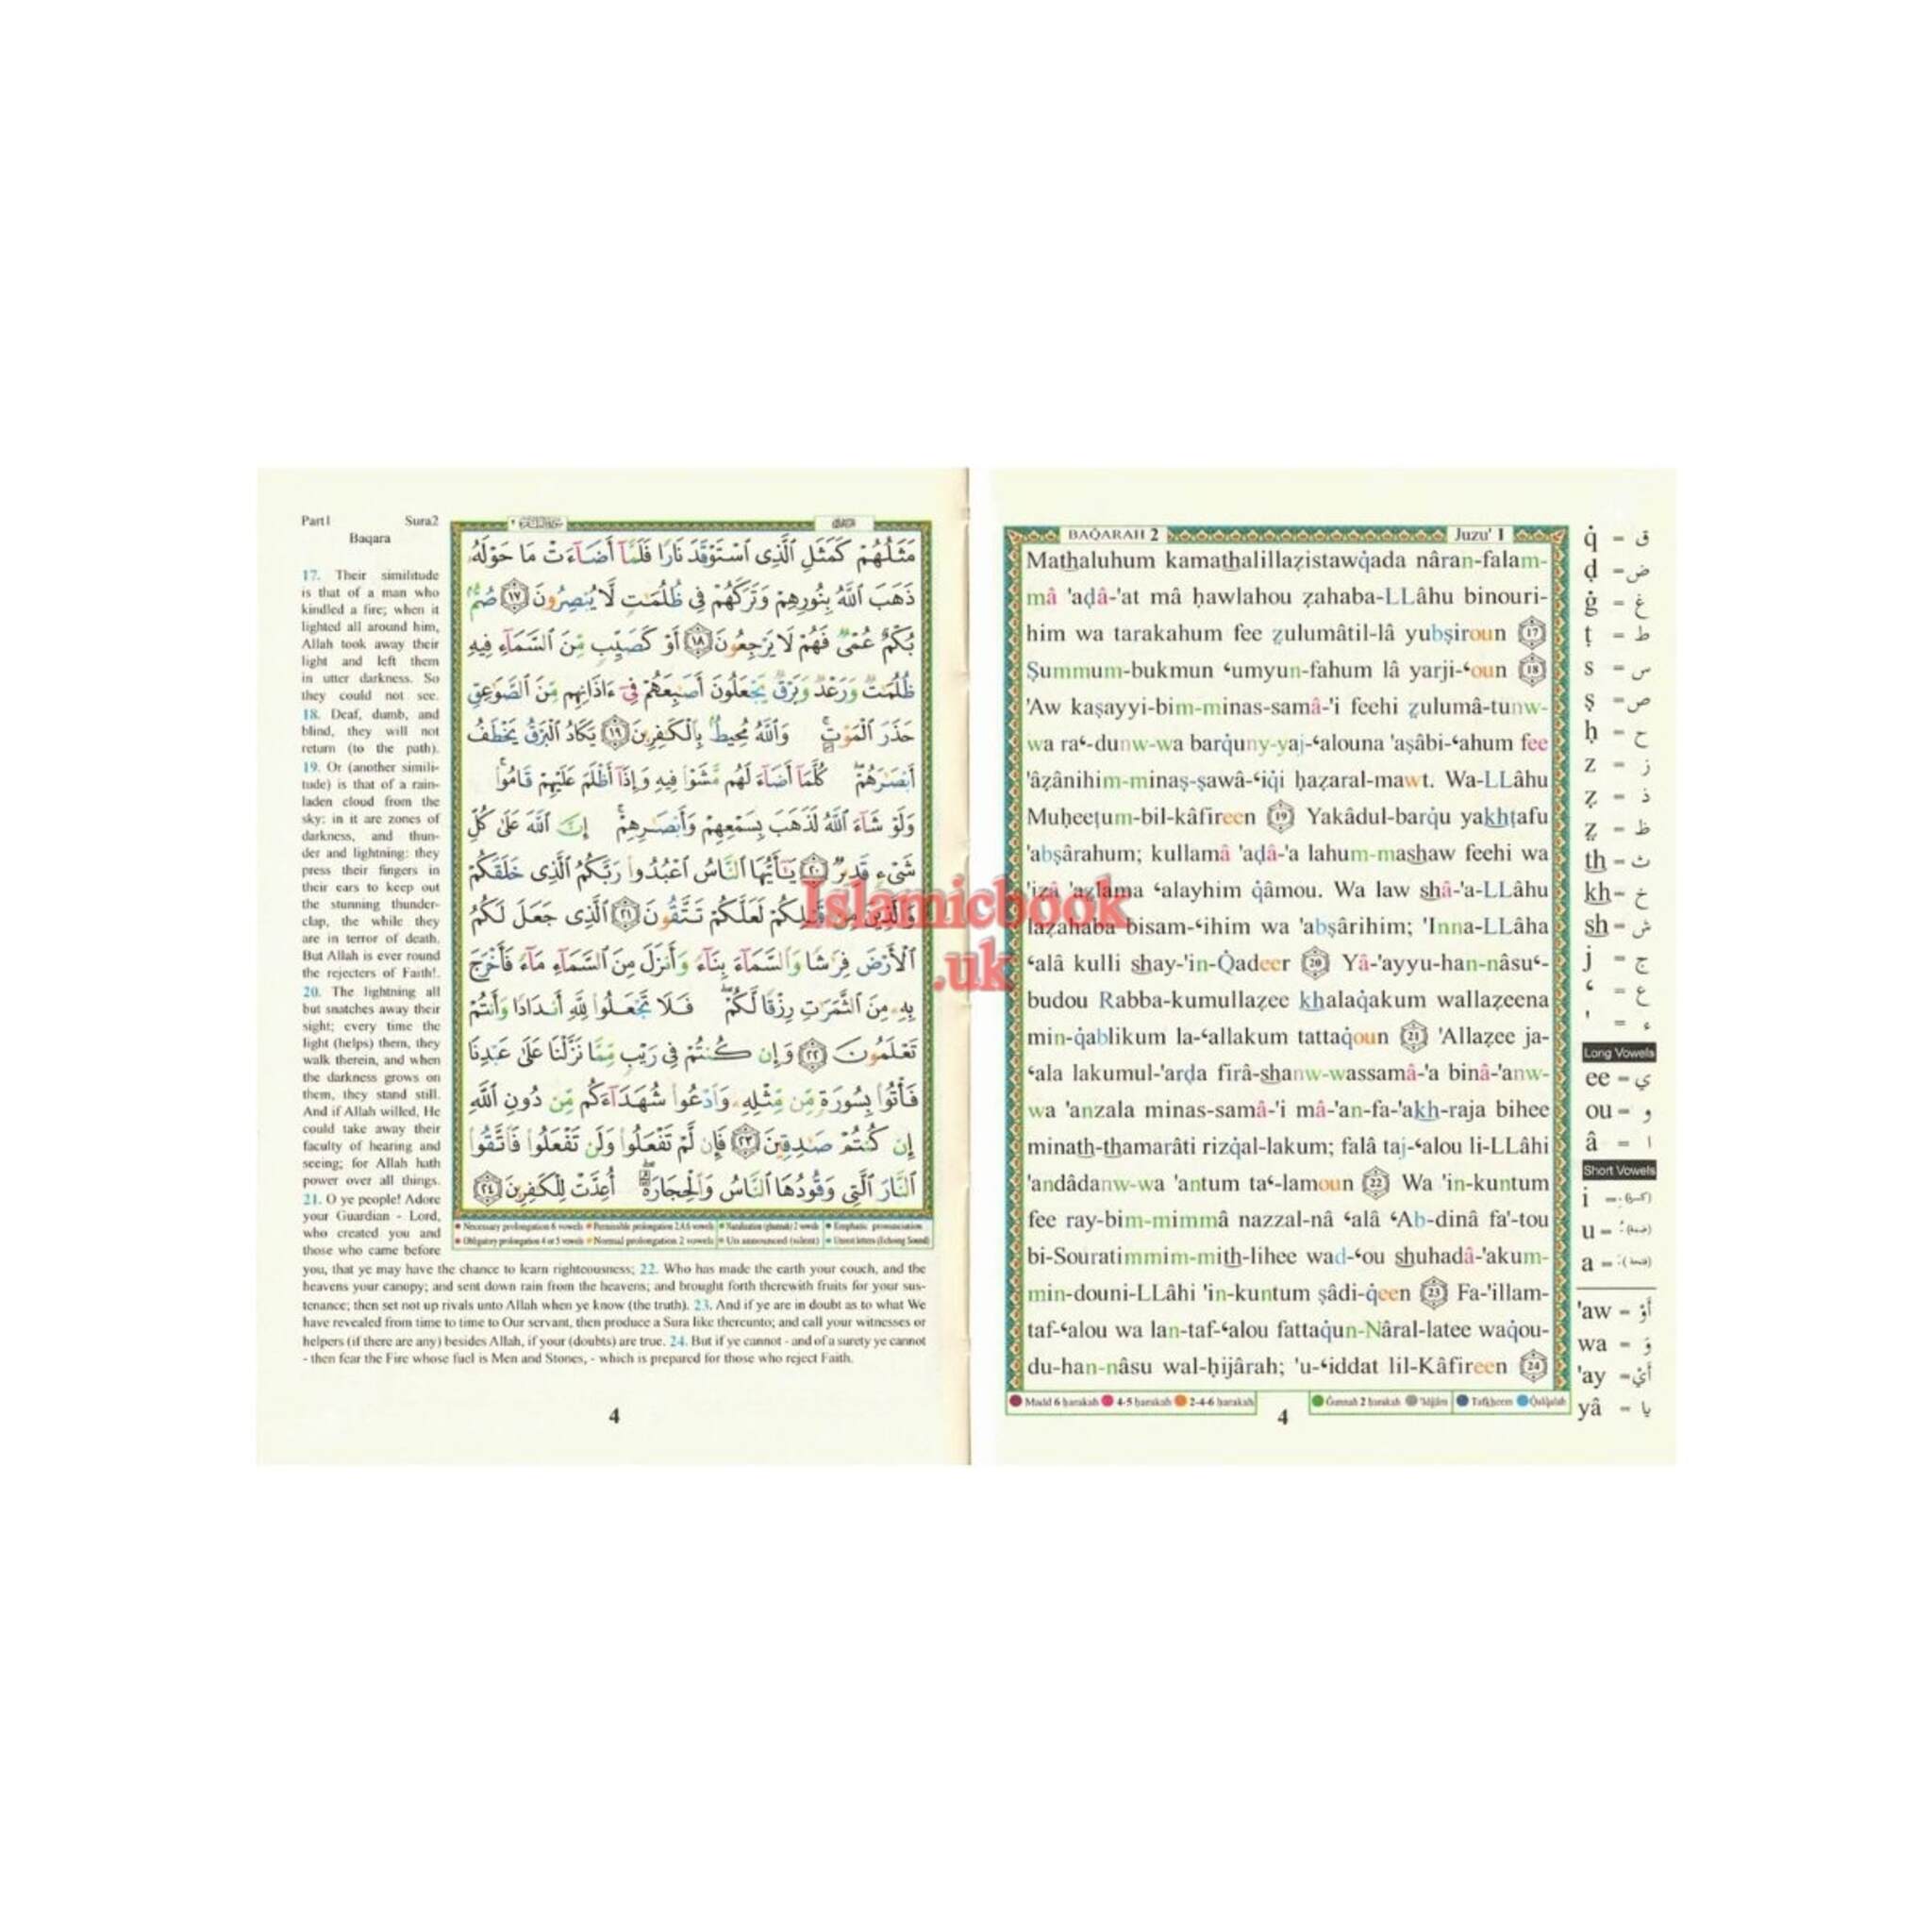 Part1 Sura2
Baqara
17. Their similitude
is that of a man who
kindled a fire; when it
lighted all around him,
Allah took away their
light and left them
in utter darkness. So
they could not see.
18. Deaf, dumb, and
blind, they will not
return (to the path).
19. Or (another simili-
tude) is that of a rain-
laden cloud from the
sky: in it are zones of
darkness, and thun-
der and lightning: they
press their fingers in
their ears to keep out
the stunning thunder-
clap, the while they
are in terror of death.
But Allah is ever round
the rejecters of Faith!.
20. The lightning all
but snatches away their
sight; every time the
light (helps) them, they
walk therein, and when
the darkness grows on
them, they stand still.
And if Allah willed, He
could take away their
faculty of hearing and
seeing; for Allah hath
power over all things.
21. O ye people! Adore
your Guardian - Lord,
who created you and
those who came before
you, that ye may have the chance to learn righteousness; 22. Who has made the earth your couch, and the
heavens your canopy; and sent down rain from the heavens; and brought forth therewith fruits for your sus-
tenance; then set not up rivals unto Allah when ye know (the truth). 23. And if ye are in doubt as to what We
have revealed from time to time to Our servant, then produce a Sura like thereunto; and call your witnesses or
helpers (if there are any) besides Allah, if your (doubts) are true. 24. But if ye cannot - and of a surety ye cannot
- then fear the Fire whose fuel is Men and Stones, - which is prepared for those who reject Faith.
مَثَلُهُمْ كَمَثَلِ ٱلَّذِى ٱسْتَوْقَدَ نَارًا فَلَمَّآ أَضَآءَتْ مَا حَوْلَهُۥ
ذَهَبَ ٱللَّهُ بِنُورِهِمْ وَتَرَكَهُمْ فِى ظُلُمَٰتٍ لَّا يُبْصِرُونَ ١٧ صُمٌّۢ
بُكْمٌ عُمْىٌ فَهُمْ لَا يَرْجِعُونَ ١٨ أَوْ كَصَيِّبٍ مِّنَ ٱلسَّمَآءِ فِيهِ
ظُلُمَٰتٌ وَرَعْدٌ وَبَرْقٌ يَجْعَلُونَ أَصَٰبِعَهُمْ فِىٓ ءَاذَانِهِم مِّنَ ٱلصَّوَٰعِقِ
حَذَرَ ٱلْمَوْتِ ۚ وَٱللَّهُ مُحِيطٌۢ بِٱلْكَٰفِرِينَ ١٩ يَكَادُ ٱلْبَرْقُ يَخْطَفُ
أَبْصَٰرَهُمْ ۖ كُلَّمَآ أَضَآءَ لَهُم مَّشَوْا۟ فِيهِ وَإِذَآ أَظْلَمَ عَلَيْهِمْ قَامُوا۟ ۚ
وَلَوْ شَآءَ ٱللَّهُ لَذَهَبَ بِسَمْعِهِمْ وَأَبْصَٰرِهِمْ ۚ إِنَّ ٱللَّهَ عَلَىٰ كُلِّ
شَىْءٍ قَدِيرٌ ٢٠ يَٰٓأَيُّهَا ٱلنَّاسُ ٱعْبُدُوا۟ رَبَّكُمُ ٱلَّذِى خَلَقَكُمْ
وَٱلَّذِينَ مِن قَبْلِكُمْ لَعَلَّكُمْ تَتَّقُونَ ٢١ ٱلَّذِى جَعَلَ لَكُمُ
ٱلْأَرْضَ فِرَٰشًا وَٱلسَّمَآءَ بِنَآءً وَأَنزَلَ مِنَ ٱلسَّمَآءِ مَآءً فَأَخْرَجَ
بِهِۦ مِنَ ٱلثَّمَرَٰتِ رِزْقًا لَّكُمْ ۖ فَلَا تَجْعَلُوا۟ لِلَّهِ أَندَادًا وَأَنتُمْ
تَعْلَمُونَ ٢٢ وَإِن كُنتُمْ فِى رَيْبٍ مِّمَّا نَزَّلْنَا عَلَىٰ عَبْدِنَا
فَأْتُوا۟ بِسُورَةٍ مِّن مِّثْلِهِۦ وَٱدْعُوا۟ شُهَدَآءَكُم مِّن دُونِ ٱللَّهِ
إِن كُنتُمْ صَٰدِقِينَ ٢٣ فَإِن لَّمْ تَفْعَلُوا۟ وَلَن تَفْعَلُوا۟ فَٱتَّقُوا۟
ٱلنَّارَ ٱلَّتِى وَقُودُهَا ٱلنَّاسُ وَٱلْحِجَارَةُ ۖ أُعِدَّتْ لِلْكَٰفِرِينَ ٢٤
Necessary prolongation 6 vowels Permissible prolongation 2,4,6 vowels Nazalization (ghunnah) 2 vowels Emphatic pronunciation
Obligatory prolongation 4 or 5 vowels Normal prolongation 2 vowels Un announced (silent) Unrest letters (Echoing Sound)
4
BAQ̇ARAH 2 Juzu' 1
Mathaluhum kamathalillaz̧istawq̇ada nâran-falam-
mâ 'aḍâ-'at mâ ḥawlahou z̧ahaba-LLâhu binouri-
him wa tarakahum fee ẓulumâtil-lâ yubṣiroun 17
Ṣummum-bukmun ‘umyun-fahum lâ yarji-‘oun 18
'Aw kaṣayyi-bim-minas-samâ-'i feehi ẓulumâ-tunw-
wa ra‘-dunw-wa barq̇uny-yaj-‘alouna 'aṣâbi-‘ahum fee
'âz̧ânihim-minaṣ-ṣawâ-‘iq̇i ḥaz̧aral-mawt. Wa-LLâhu
Muḥeeṭum-bil-kâfireen 19 Yakâdul-barq̇u yakhṭafu
'abṣârahum; kullamâ 'aḍâ-'a lahum-mashaw feehi wa
'iz̧â 'aẓlama ‘alayhim q̇âmou. Wa law shâ-'a-LLâhu
laz̧ahaba bisam-‘ihim wa 'abṣârihim; 'Inna-LLâha
‘alâ kulli shay-'in-Q̇adeer 20 Yâ-'ayyu-han-nâsu‘-
budou Rabba-kumullaz̧ee khalaq̇akum wallaz̧eena
min-q̇ablikum la-‘allakum tattaq̇oun 21 'Allaz̧ee ja-
‘ala lakumul-'arḍa firâ-shanw-wassamâ-'a binâ-'anw-
wa 'anzala minas-samâ-'i mâ-'an-fa-'akh-raja bihee
minath-thamarâti rizq̇al-lakum; falâ taj-‘alou li-LLâhi
'andâdanw-wa 'antum ta‘-lamoun 22 Wa 'in-kuntum
fee ray-bim-mimmâ nazzal-nâ ‘alâ ‘Ab-dinâ fa'-tou
bi-Souratimmim-mith-lihee wad-‘ou shuhadâ-'akum-
min-douni-LLâhi 'in-kuntum ṣâdi-q̇een 23 Fa-'illam-
taf-‘alou wa lan-taf-‘alou fattaq̇un-Nâral-latee waq̇ou-
du-han-nâsu wal-ḥijârah; 'u-‘iddat lil-Kâfireen 24
Madd 6 ḥarakah 4-5 ḥarakah 2-4-6 ḥarakah Ġunnah 2 ḥarakah Tafkheem Q̇alq̇alah
4
q̇ = ق
ḍ = ض
ġ = غ
ṭ = ط
s = س
ṣ = ص
ḥ = ح
z = ز
z̧ = ذ
ẓ = ظ
th = ث
kh = خ
sh = ش
j = ج
‘ = ع
' = ء
Long Vowels
ee = ي
ou = و
â = ا
Short Vowels
i = (كسرة)
u = (ضمة)
a = (فتحة)
'aw = أَوْ
wa = وَ
'ay = أَيْ
yâ = يا
Islamicbook
.uk